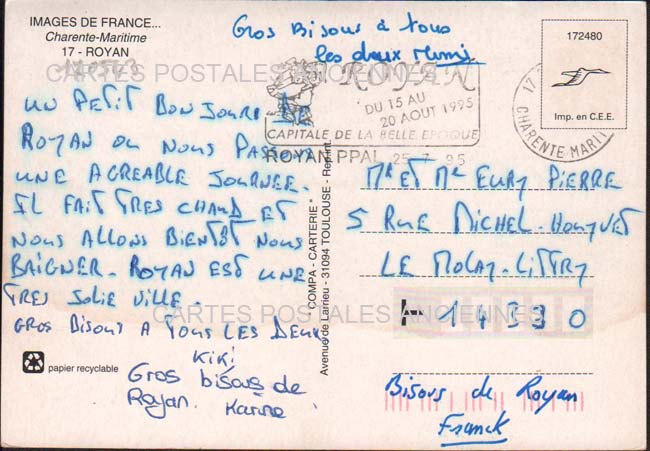 IMAGES DE FRANCE...
Charente-Maritime
17 - ROYAN
Gros Bisous à tous
les deux
172480
Imp. en C.E.E.
ROYAN
DU 15 AU
20 AOUT 1995
CAPITALE DE LA BELLE EPOQUE
ROYAN PPAL 25-7 95
17
CHARENTE MARIT
CARTES POSTALES ANCIENNES
UN PETIT BONJOUR DE
ROYAN OU NOUS PASSONS
UNE AGREABLE JOURNEE.
IL FAIT TRES CHAUD ET
NOUS ALLONS BIENTÔT NOUS
BAIGNER. ROYAN EST UNE
TRES JOLIE VILLE.
GROS BISOUS A TOUS LES DEUX
KiKi
Gros bisous de
Royan. Karine
papier recyclable
COMPA - CARTERIE
Avenue de Larrieu - 31094 TOULOUSE - Rep. Int.
Mr ET Me EURY PIERRE
5 RUE MICHEL-HOUYVET
LE MOLAY-LITTRY
14330
CARTES POSTALES ANCIENNES
Bisous de Royan
Franck